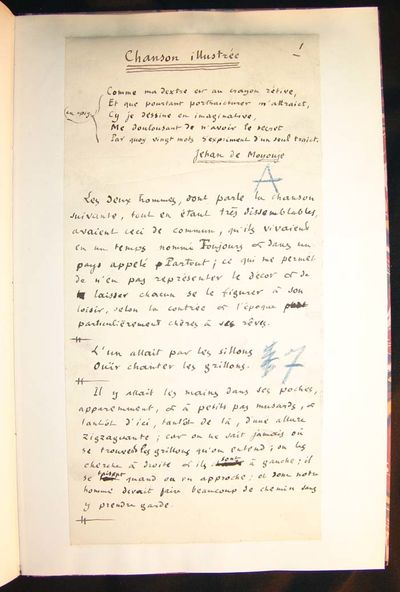 1
Chanson illustrée
Comme ma dextre est au crayon rétive,
Et que pourtant portraicturer m'attraict,
Cy je dessine en imaginative,
Me doulousant de n'avoir le secret
Par quoy vingt mots s'expriment d'un seul traict.
Jehan de Moyouse
A
Les deux hommes, dont parle la chanson
suivante, tout en étant très dissemblables,
avaient ceci de commun, qu'ils vivaient
en un temps nommé Toujours et dans un
pays appelé Partout ; ce qui me permet
de n'en pas représenter le décor et de
laisser chacun se le figurer à son
loisir, selon la contrée et l'époque
particulièrement chères à ses rêves.
L'un allait par les sillons
Ouïr chanter les grillons.
7
Il y allait les mains dans ses poches,
apparemment, et à petits pas musards, et
tantôt d'ici, tantôt de là, d'une allure
zigzaguante ; car on ne sait jamais où
se trouvent les grillons qu'on entend ; on les
cherche à droite et ils sont à gauche ; il
se taisent quand on en approche ; et donc notre
homme devait faire beaucoup de chemin sans
y prendre garde.